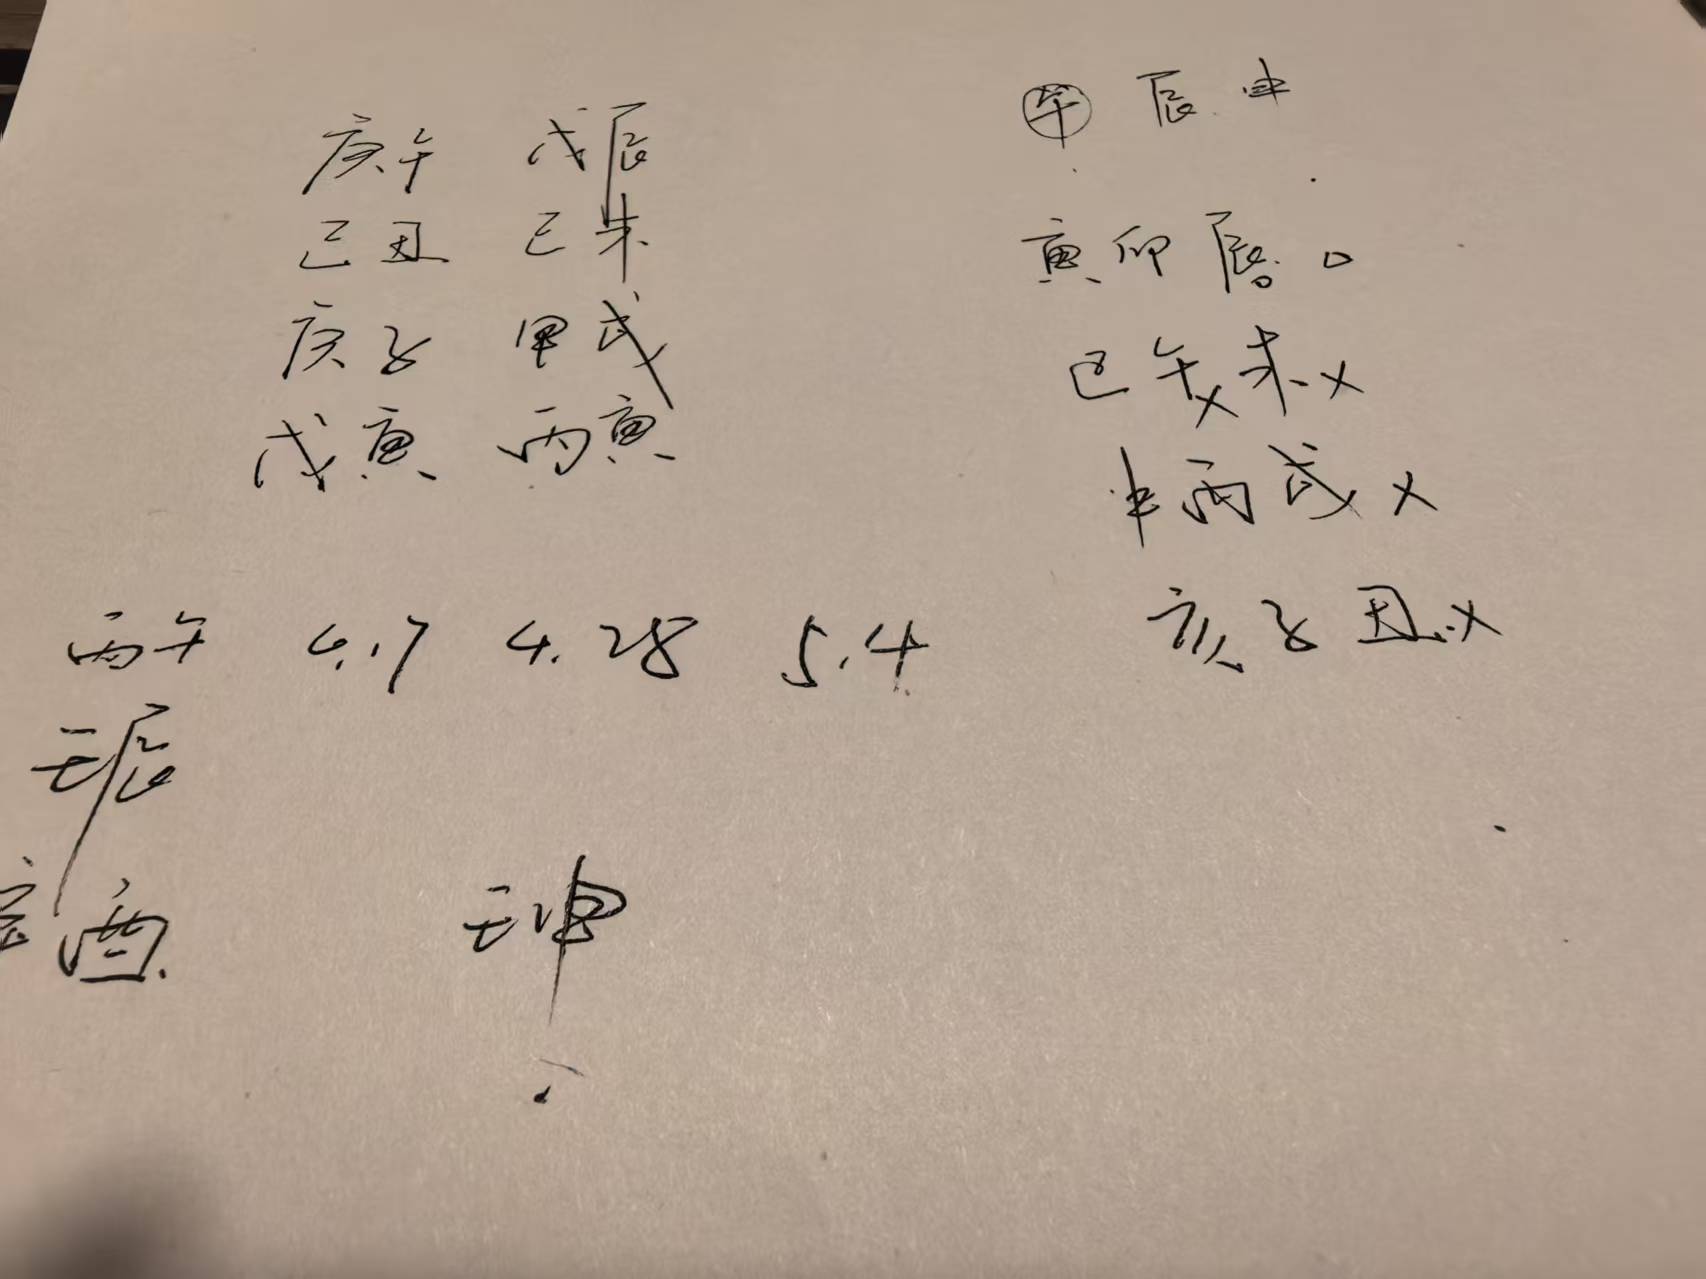 庚午 戊辰
己丑 己未
庚子 甲戌
戊寅 丙寅
午 辰 申
寅卯辰
巳午x未x
申酉戌x
亥子丑x
丙午 4.17 4.28 5.4
壬辰
酉
壬申